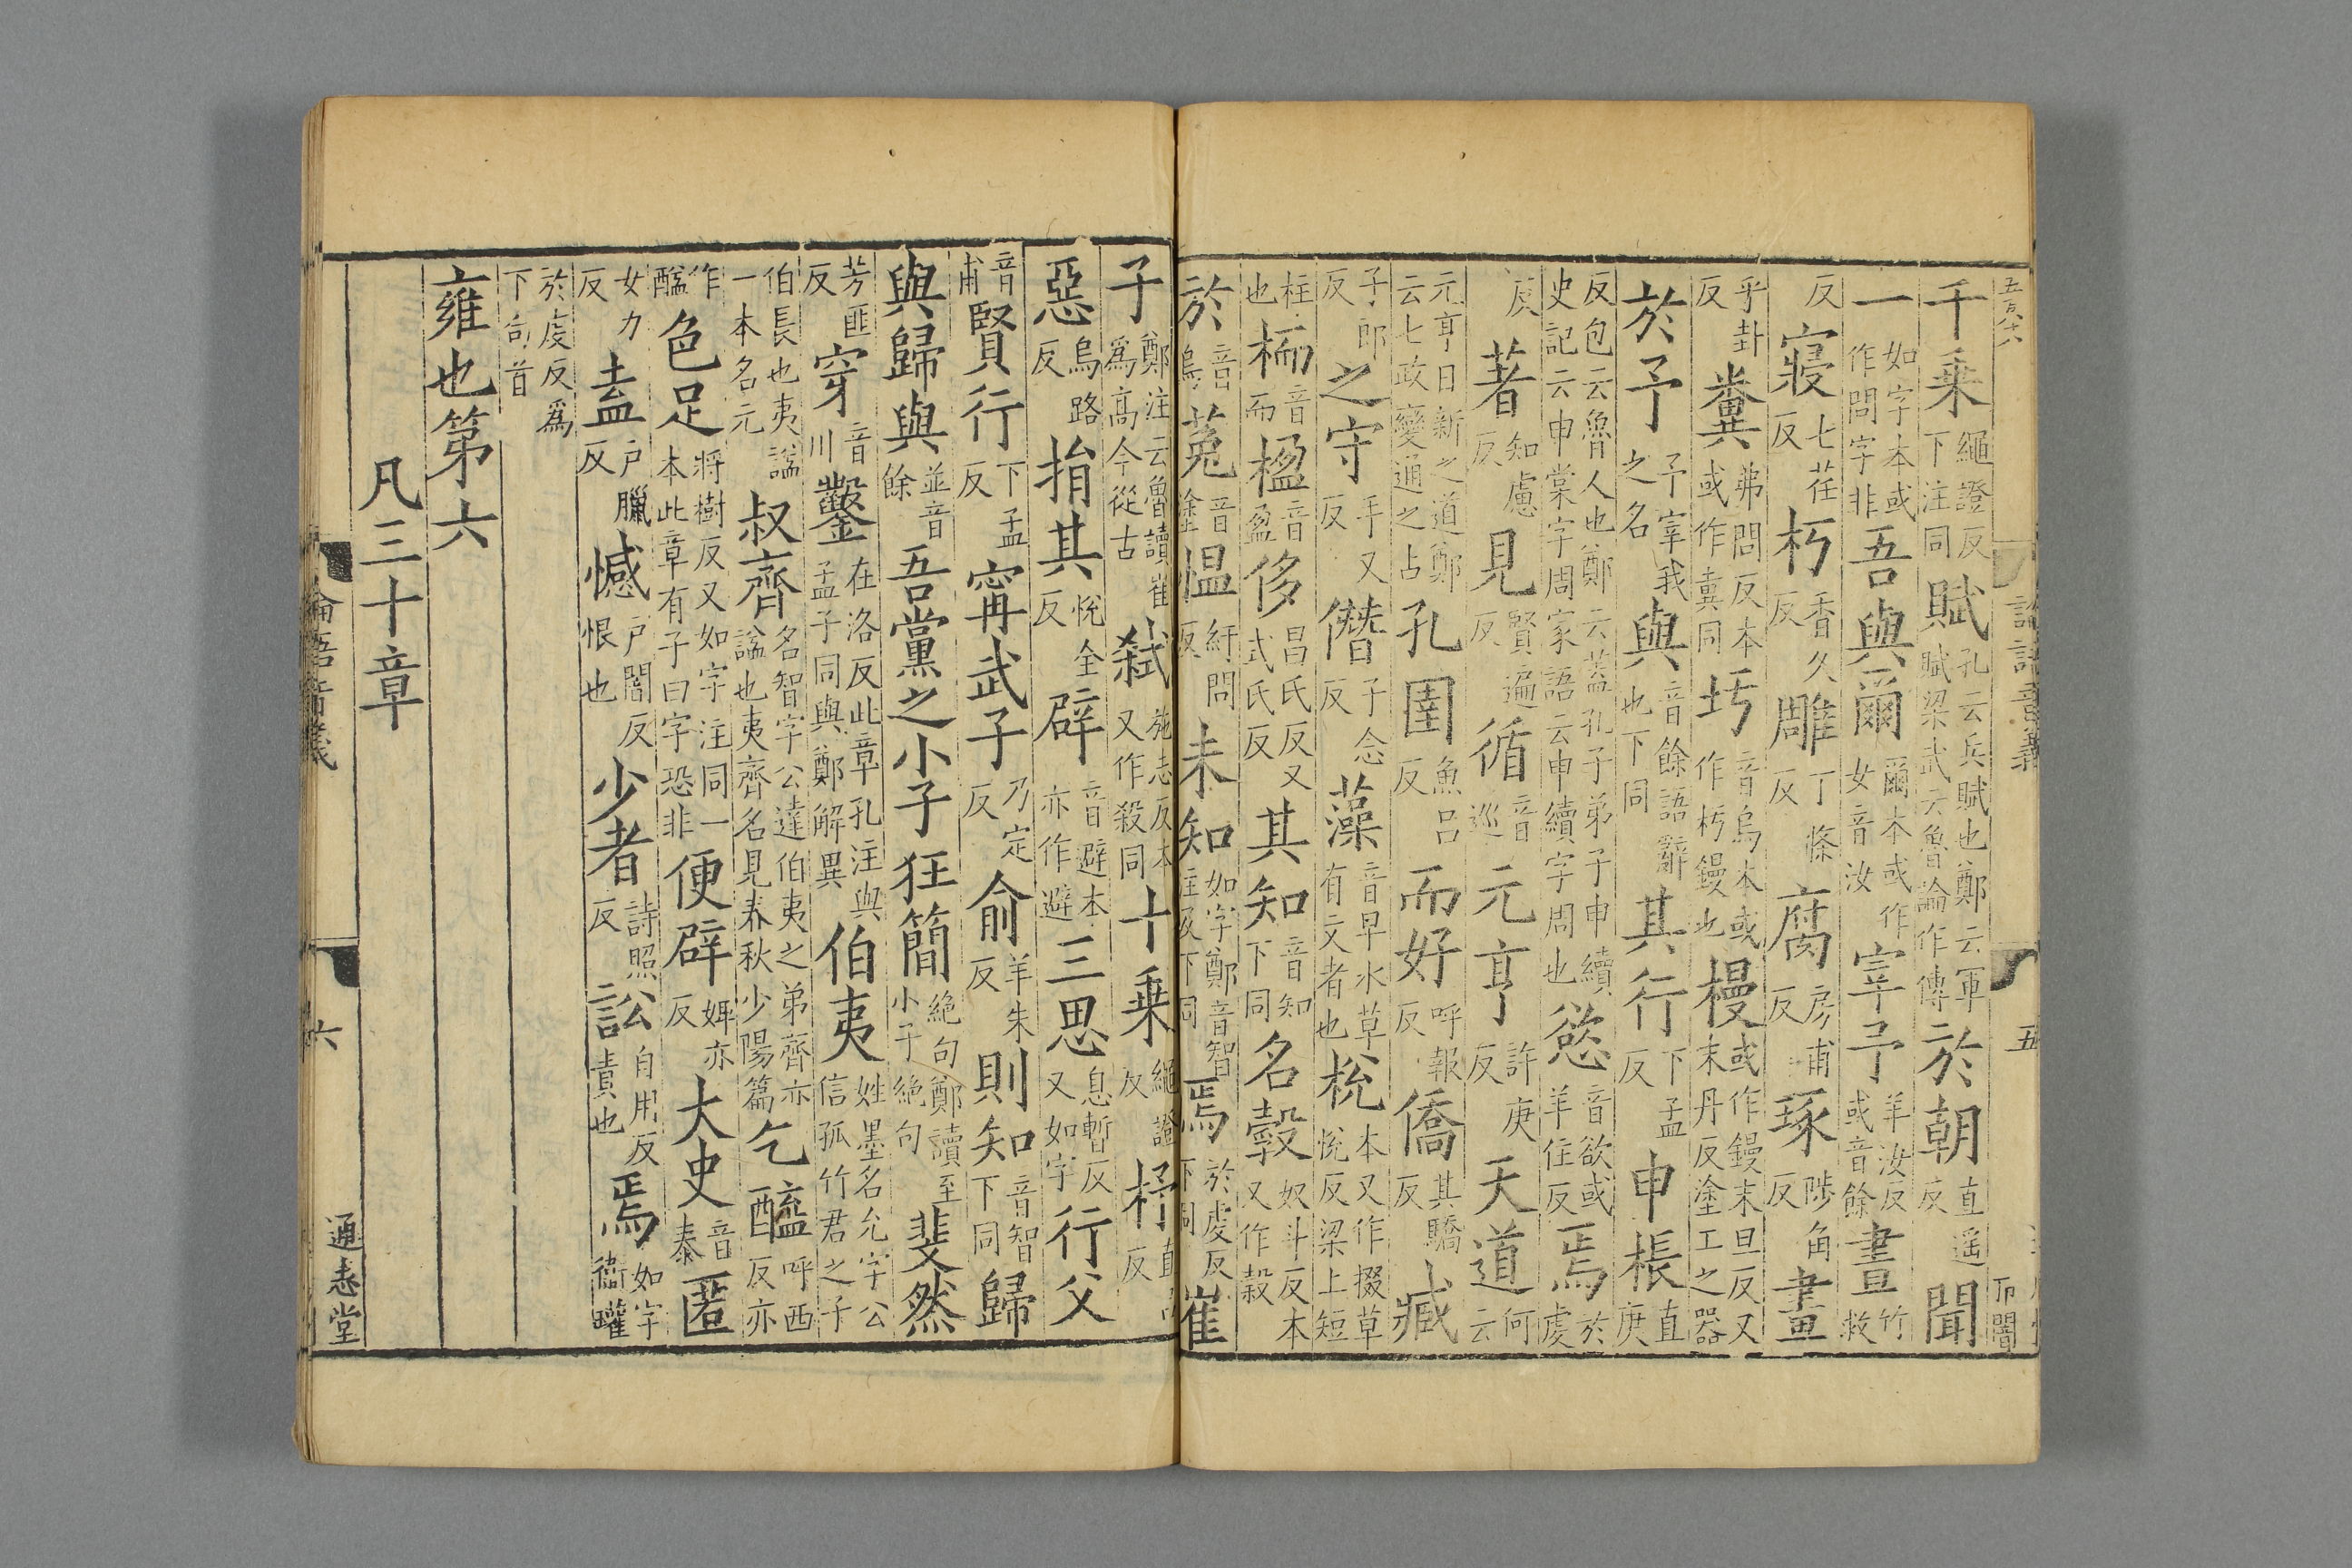 千乗繩證反下注同賦孔云兵賦也鄭云軍賦梁武云魯論作傳於朝直遥反聞
一如字本或作問字非吾與爾爾本或作女音汝宰予羊汝反或音餘晝竹救
反寢七荏反朽香久反雕丁條反腐房甫反琢陟角反畫
乎卦反糞弗問反本或作冀同圬音烏本或作杇鏝也槾或作鏝末旦反又末丹反塗工之器
於予子宰我之名與音餘語辭也下同其行下孟反申棖直庚
反包云魯人也鄭云蓋孔子弟子申續史記云申棠字周家語云申續字周也慾音欲或羊住反焉於虔
反著知慮反見賢遍反循音巡元亨許庚反天道何云
元亨日新之道鄭云七政變通之占孔圉魚呂反而好呼報反僑其驕反臧
子郎反之守手又反僭子念反藻音早水草有文者也梲本又作掇草悅反梁上短
柱也栭音而楹音盈侈昌氏反又式氏反其知音知下同名穀奴斗反本又作穀
於音烏菟音塗愠紆問反未知如字鄭音智注及下同焉於虔反下同崔
子鄭注云魯讀崔爲高今從古弑施志反本又作殺同十乗繩證反杼直呂反
惡烏路反捐其悅全反辟音避本亦作避三思息暫反又如字行父
音甫賢行下孟反甯武子乃定反俞羊朱反則知音智下同歸
與歸與並音餘吾黨之小子狂簡絶句鄭讀至小子絶句斐然
芳匪反穿音川鑿在洛反此章孔注與孟子同與鄭解異伯夷姓墨名允字公信孤竹君之子
伯長也夷謚一本名元叔齊名智字公達伯夷之弟齊亦謚也夷齊名見春秋少陽篇乞醯呼西反亦
作醢色足將樹反又如字注同一本此章有子曰字恐非便辟婢亦反大史音泰匿
女力反盍户臘反憾户闇反恨也少者詩照反訟自用反責也焉如字衞瓘
於虔反爲下句首
雍也第六
凡三十章
論語音義
六
通志堂
論語音義
五